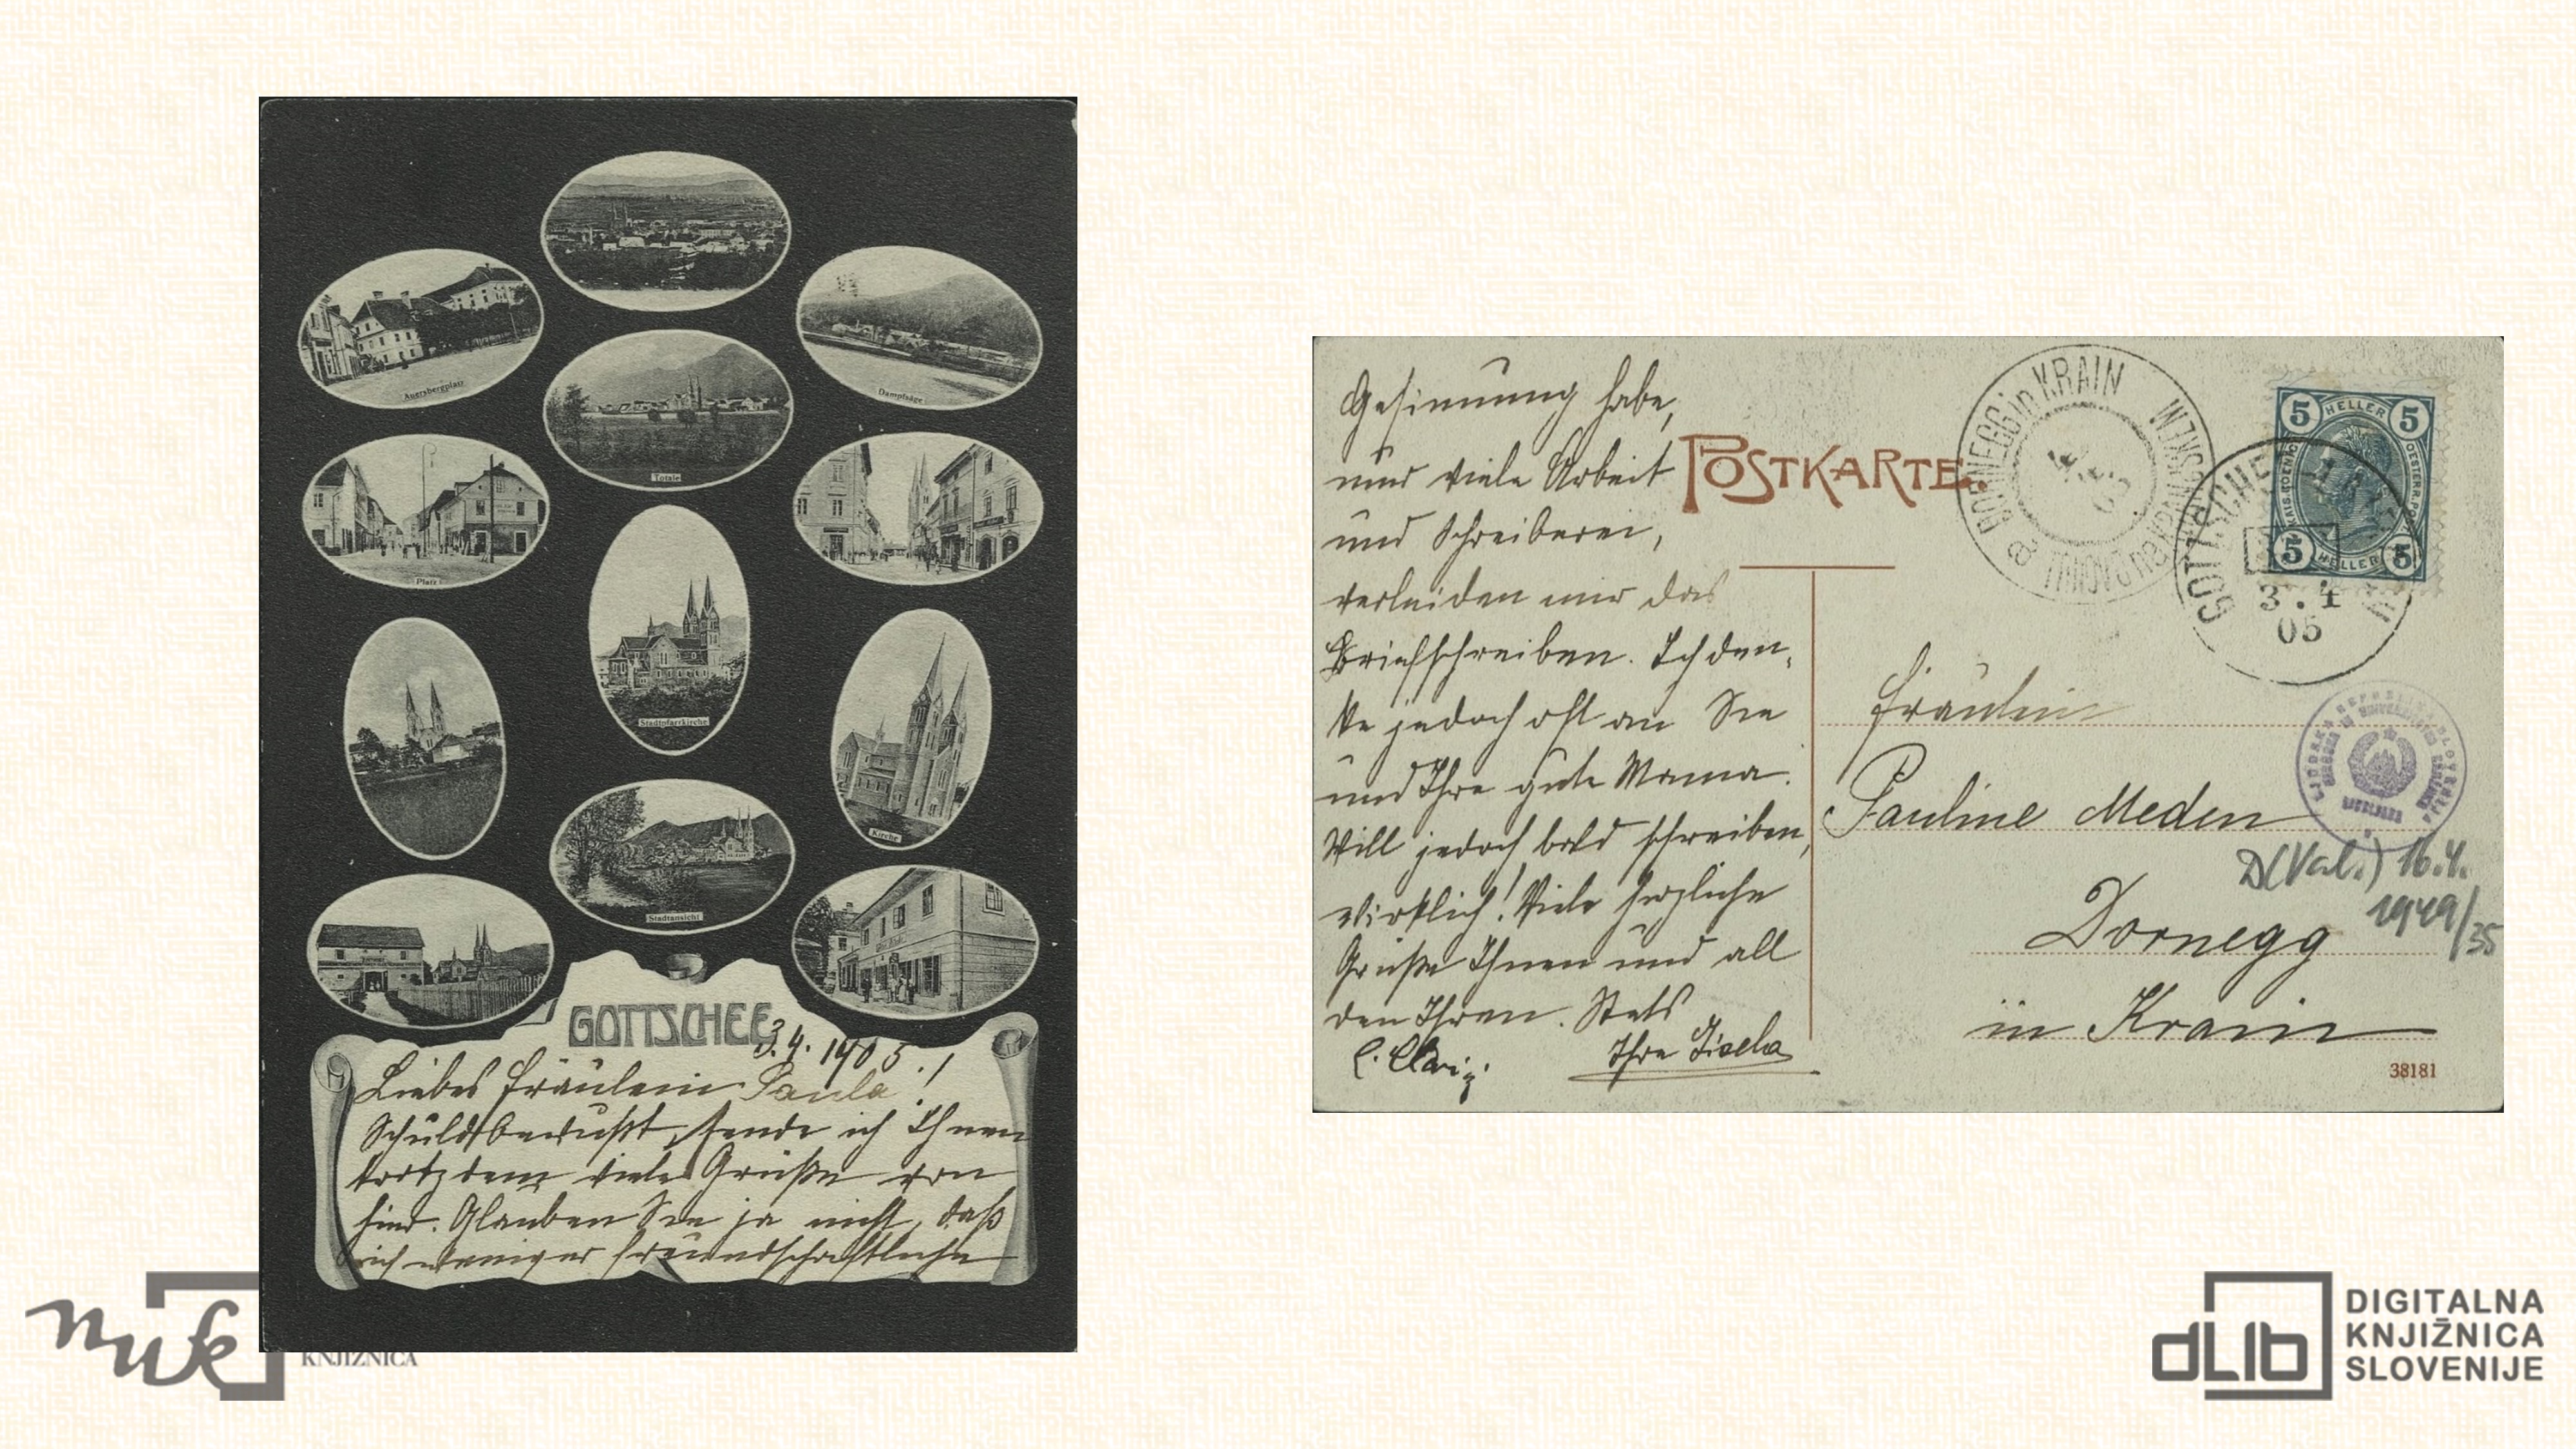 Auersbergplatz
Dampfsäge
Totale
Platz
Stadtpfarrkirche
Kirche
Stadtansicht
GOTTSCHEE
3.4. 1905
Liebes Fräulein Paula!
Schuldbewußt, sende ich Ihnen
trotzdem viele Grüße von
hier. Glauben Sie ja nicht, daß
ich weniger freundschaftliche
Gesinnung habe,
nur viele Arbeit
und Schreiberei,
verleiden mir das
Briefschreiben. Ich den-
ke jedoch oft an Sie
und Ihre gute Mama.
Will jedoch bald schreiben,
wirklich! Viele herzliche
Grüße Ihnen und all
den Ihren. Stets
Ihre
POSTKARTE.
DORNEGG in KRAIN
a
5 HELLER 5
5 HELLER 5
GOTTSCHEE
3.4
05
Fräulein
Pauline Meden
D(Val.) 16.4.
1949/35
Dornegg
in Krain
38181
nuk
KNJIŽNICA
dLib
DIGITALNA
KNJIŽNICA
SLOVENIJE